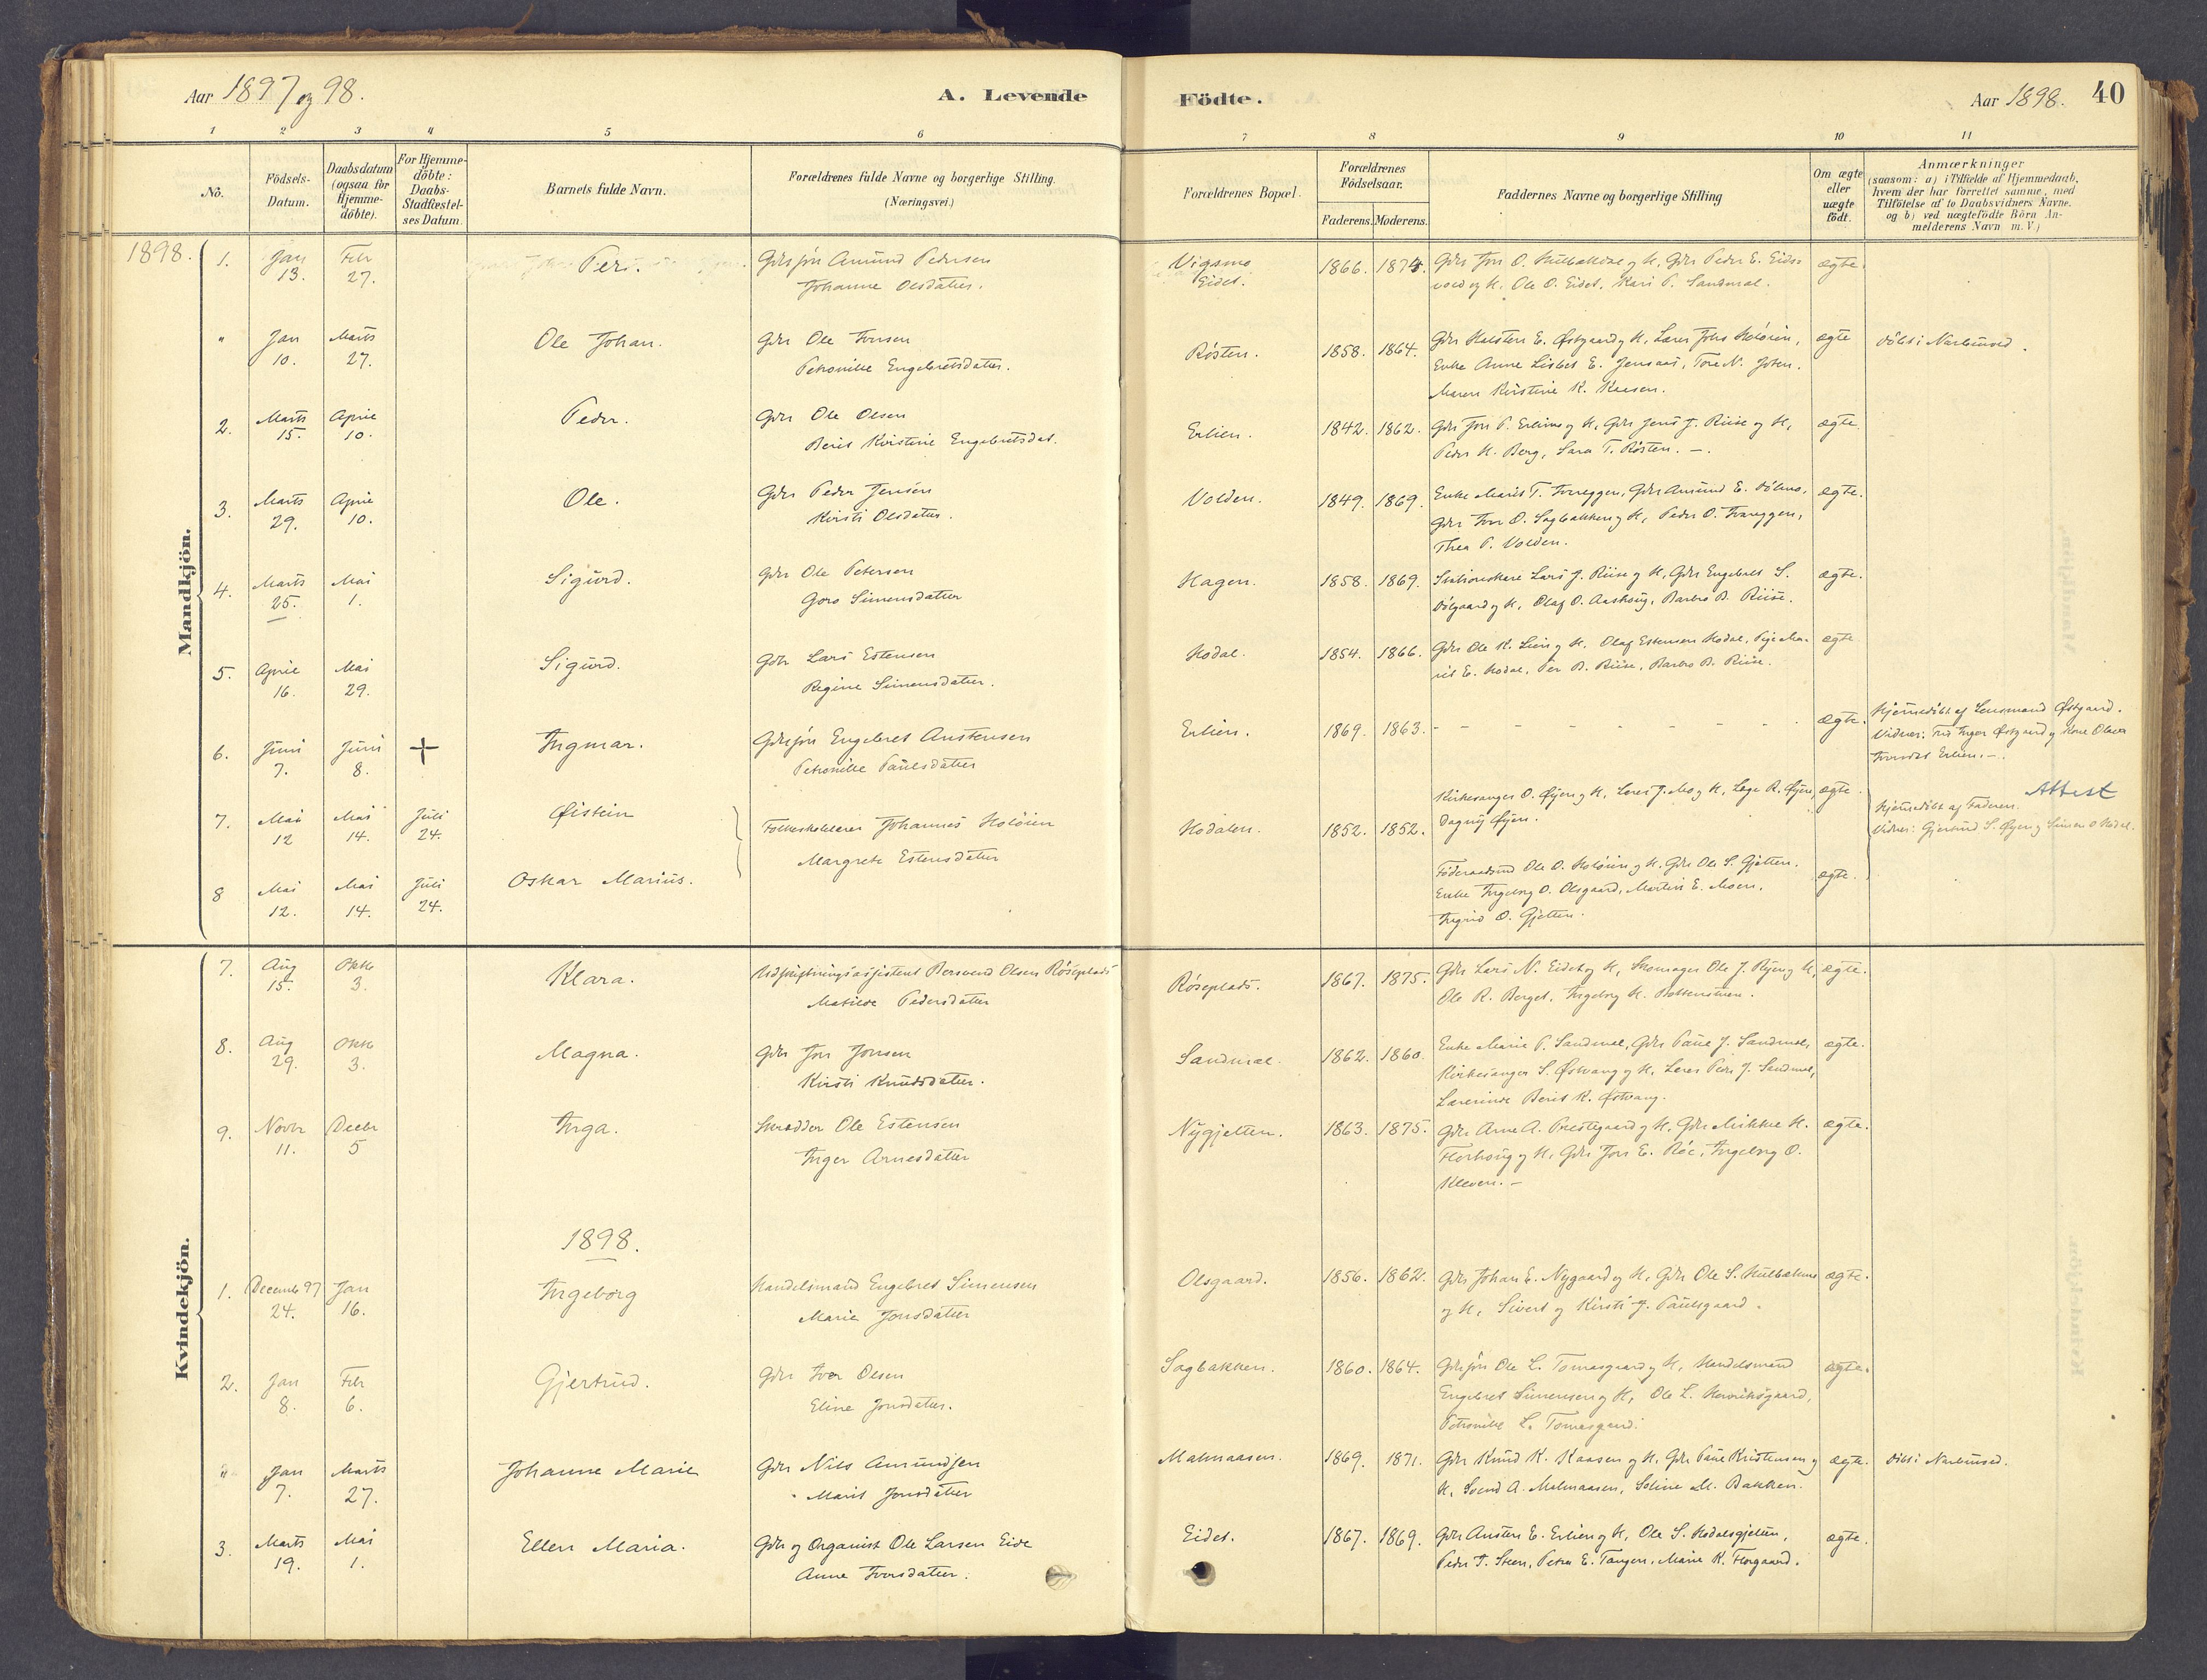 Aar 1897 og 98.
A. Levende
Födte.
Aar 1898. 40
1 2 3 4 5 6 7 8 9 10 11
No.
Födsels-
Datum.
Daabsdatum
(ogsaa for
Hjemme-
döbte).
For Hjemme-
döbte:
Daabs-
Stadfæstel-
ses Datum.
Barnets fulde Navn.
Forældrenes fulde Navne og borgerlige Stilling.
(Næringsvei.)
Forældrenes Bopæl.
Forældrenes
Födselsaar.
Faderens. Moderens.
Faddernes Navne og borgerlige Stilling
Om ægte
eller
uægte
födt.
Anmærkninger
(saasom: a) i Tilfælde af Hjemmedaab,
hvem der har forrettet samme, med
Tilföielse af to Daabsvidners Navne.
og b) ved uægtefödte Börn An-
melderens Navn m.V.)
Mandkjön.
1898. 1. Jan Febr Peri. Grdsøn Amund Pedersen Vigamo 1866. 1874. ægte.
13. 27. Johanne Olsdatter. Eidet. Ole O. Eidet. Kari P. Sandmæl.
" Jan Marts Ole Johan. Gdr Ole Iversen Røsten. 1858. 1864. Gdr Halsten E. Østgaard og H., Lærer Johs Holøien, ægte døbt i Narbuvoll.
10. 27. Petronille Engebretsdatter. Enke Anne Lisbet E. Jensaas, Tore N. Joten.
Maren Kirstine K. Kaasen.
2. Marts April Peder. Gdr Ole Olsen Erlien. 1842. 1862. Gdr Jon P. Erlien og H, Gdr Jens J. Riise og H, ægte.
15. 10. Berit Kristine Engebretsdat. Peder H. Berg, Sara T. Røsten. —.
3. Marts April Ole. Gdr Peder Jensen Volden. 1849. 1869. Enke Marit T. Amund E. ægte.
29. 10. Kirsti Olsdatter. Gdr Iver O. Sagbakken og H, Peder O.
Thea P. Volden.
4. Marts Mai Sigurd. Gdr Ole Petersen Hagen. 1858. 1869. Lars J. Riise og H, Gdr Engebret S. ægte.
25. 1. Goro Simensdatter Dølgaard og H, Olaf O. Aashoug, Barbro B. Riise.
5. April Mai Sigurd. Gdr Lars Estensen Hodal. 1854. 1866. Gdr Ole K. Lien og H. Olaf Estensen Hodal, Pige Ma- ægte
16. 29. Regine Simensdatter. rit E. Hodal, Per B. Riise, Barbro B. Riise.
6. Juni Juni + Ingmar. Grdsøn Engebret Austensen Erlien. 1869. 1863. - - - - - - - ægte. Hjemmedøbt af Lensmand Østgaard.
7. 8. Petronille Paulsdatter Vidner: Inger Østgaard og Kone Olava
Iversdat Erlien. —.
7. Mai Mai Juli Øistein Folkeskolelærer Johannes Holøien Hodalen. 1852. 1852. Kirkesanger O. Øyen og H, Lærer J. Mo og H, Læge R. Øyen ægte. Attest
12 14. 24. Margrete Estensdatter Dagny Øyen. Hjemmedøbt af Faderen.
Vidner: Gjertrud S. Øyen og Simen O Hodal.
8 Mai Mai Juli Oskar Marius. Føderaadsmd Ole O. Holøien og H, Gdr Ole S. Gjelten. ægte.
12. 14. 24. Enke Ingeborg O. Olsgaard, Martin E. Moen,
Ingrid O. Gjelten.
Kvindekjön.
7. Aug Oktb Klara. Udskiftningsassistent Bersvend Olsen Røseplads Røseplads. 1867. 1875. Gdr Lars N. Eidet og H, Skomager Ole J. Ryen og H, ægte.
15. 3. Matilde Pedersdatter Ole R. Berget, Ingeborg H.
8. Aug Oktb Magna. Gdr Jon Jonsen Sandmæl. 1862. 1860. Enke Marie P. Sandmæl, Gdr Paul J. Sandmæl, ægte.
29. 3. Kirsti Knudsdatter. Kirkesanger S. Østvang og H, Lærer Peder J. Sandmæl,
Lærerinde Berit K. Østvang.
9. Novbr Decbr Inga. Skrædder Ole Estensen Nygjelten. 1863. 1875. Gdr Arne A. Prestegaard og H, Gdr Mikkel H. ægte.
11. 5 Inger Arnesdatter Florhoug og H, Gdr Jon E. Røe, Ingeborg O.
Kleven. —
1898.
1. Decemb 97 Jan Ingeborg Handelsmand Engebret Simensen Olsgaard. 1856. 1862. Gdr Johan E. Nygaard og H, Gdr Ole S. ægte.
24. 16. Marie Jonsdatter og H, Sivert og Kirsti J. Paulsgaard.
2. Jan Febr Gjertrud. Gdr Iver Olsen Sagbakken. 1860. 1864. Grdsøn Ole L. Tomasgaard og H, Handelsmand ægte.
8. 6. Eline Jonsdatter. Engebret Simensen og H, Ole L. Henriksgaard,
Petronille L. Tomasgaard.
" Jan Marts Johanne Marie Gdr Nils Amundsen Malmaasen. 1869. 1871. Gdr Knud K. Kaasen og H, Gdr Paul Kristensen og ægte. døbt i Narbuvoll.
7. 27. Marit Jonsdatter H, Svend A. Malmaasen, Soline M. Bakken.
3. Marts Mai Ellen Maria. Gdr og Organist Ole Larsen Eide Eidet. 1867. 1869. Gdr Austen E. Erlien og H, Ole S. Hodalsgjelten, ægte.
19. 1. Anne Iversdatter. Peder T. Steen, Petra E. Tangen, Marie K. Horgaard.